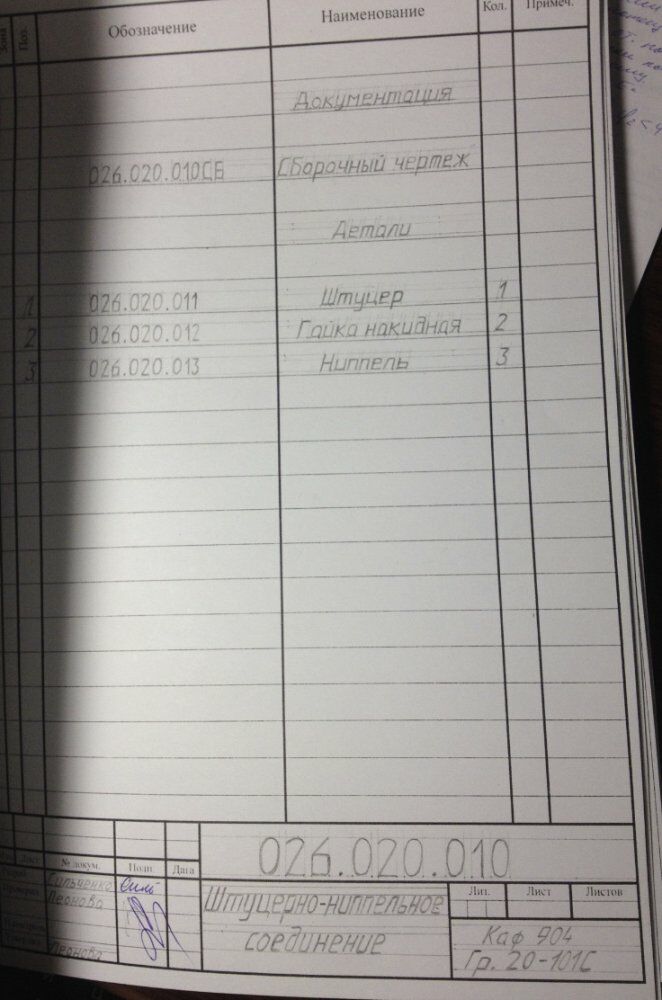 Зона Поз. Обозначение Наименование Кол. Примеч.
Документация
026.020.010СБ Сборочный чертеж
Детали
1 026.020.011 Штуцер 1
2 026.020.012 Гайка накидная 2
3 026.020.013 Ниппель 3
026.020.010
Лист № докум. Подп. Дата
Сальченко
Проверил Леонова
Штуцерно-ниппельное
соединение
Лит. Лист Листов
Каф 904
Гр. 20-101С
Леонова